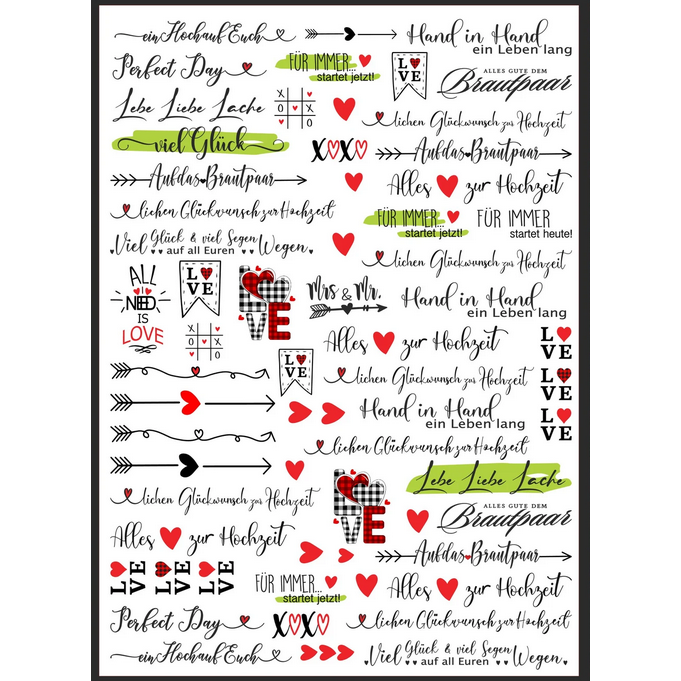 ein Hoch auf Euch
Hand in Hand
ein Leben lang
Perfect Day
FÜR IMMER...
startet jetzt!
LOVE
ALLES GUTE DEM
Brautpaar
Lebe Liebe Lache
X O X
O O
X O X
lichen Glückwunsch zur Hochzeit
viel Glück
XOXO
Auf das Brautpaar
Auf das Brautpaar
Alles zur Hochzeit
lichen Glückwunsch zur Hochzeit
FÜR IMMER...
startet jetzt!
FÜR IMMER
startet heute!
Viel Glück & viel Segen
auf all Euren Wegen.
lichen Glückwunsch zur Hochzeit
ALL
I NEED
IS
LOVE
LOVE
LOVE
Mrs & Mr.
Hand in Hand
ein Leben lang
X O X
O O
X O X
Alles zur Hochzeit
LOVE
LOVE
lichen Glückwunsch zur Hochzeit
LOVE
Hand in Hand
ein Leben lang
LOVE
lichen Glückwunsch zur Hochzeit
Lebe Liebe Lache
lichen Glückwunsch zur Hochzeit
LOVE
ALLES GUTE DEM
Brautpaar
Alles zur Hochzeit
Auf das Brautpaar
LOVE LOVE LOVE
FÜR IMMER...
startet jetzt!
Alles zur Hochzeit
Perfect Day
XOXO
lichen Glückwunsch zur Hochzeit
ein Hoch auf Euch
Viel Glück & viel Segen
auf all Euren Wegen.